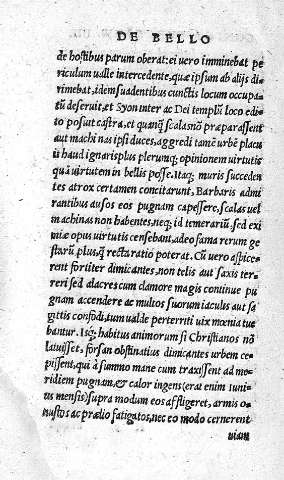 DE BELLO
de hostibus parum oberat: ei uero imminebat pe
riculum ualle intercedente, quæ ipsum ab alijs di
rimebat, idem suadentibus cunctis locum occupa
tū deseruit, et Syon inter ac Dei templū loco edi
to posuit castra, et quanq̃ scalas nō præparassent
aut machinas ipsi duces, aggredi tamē urbē placu
it haud ignaris plus plerunq; opinionem uirtutis
quā uirtutem in bellis posse. Itaq; muris succeden
tes atrox certamen concitarunt, Barbaris admi
rantibus ausos eos pugnam capessere, scalas uel
machinas non habentes, neq; id temerariū, sed exi
miæ opus uirtutis censebant, adeo fama rerum ge
starū plus, q̃ recta ratio poterat. Cū uero aspice
rent fortiter dimicantes, non telis aut saxis terre
reri sed alacres cum clamore magis continue pu
gnam accendere ac multos suorum iaculis aut sa
gittis confodi, tum ualde perterriti uix mœnia tue
bantur. Isq; habitus animorum si Christianos nō
latuisset, forsan obstinatius dimicantes urbem ce-
pissent, qui à summo mane cum traxissent ad me-
ridiem pugnam, & calor ingens (erat enim Iuni-
us mensis) supra modum eos affligeret, armis o-
nustos ac prælio fatigatos, nec eo modo cernerent
uiam